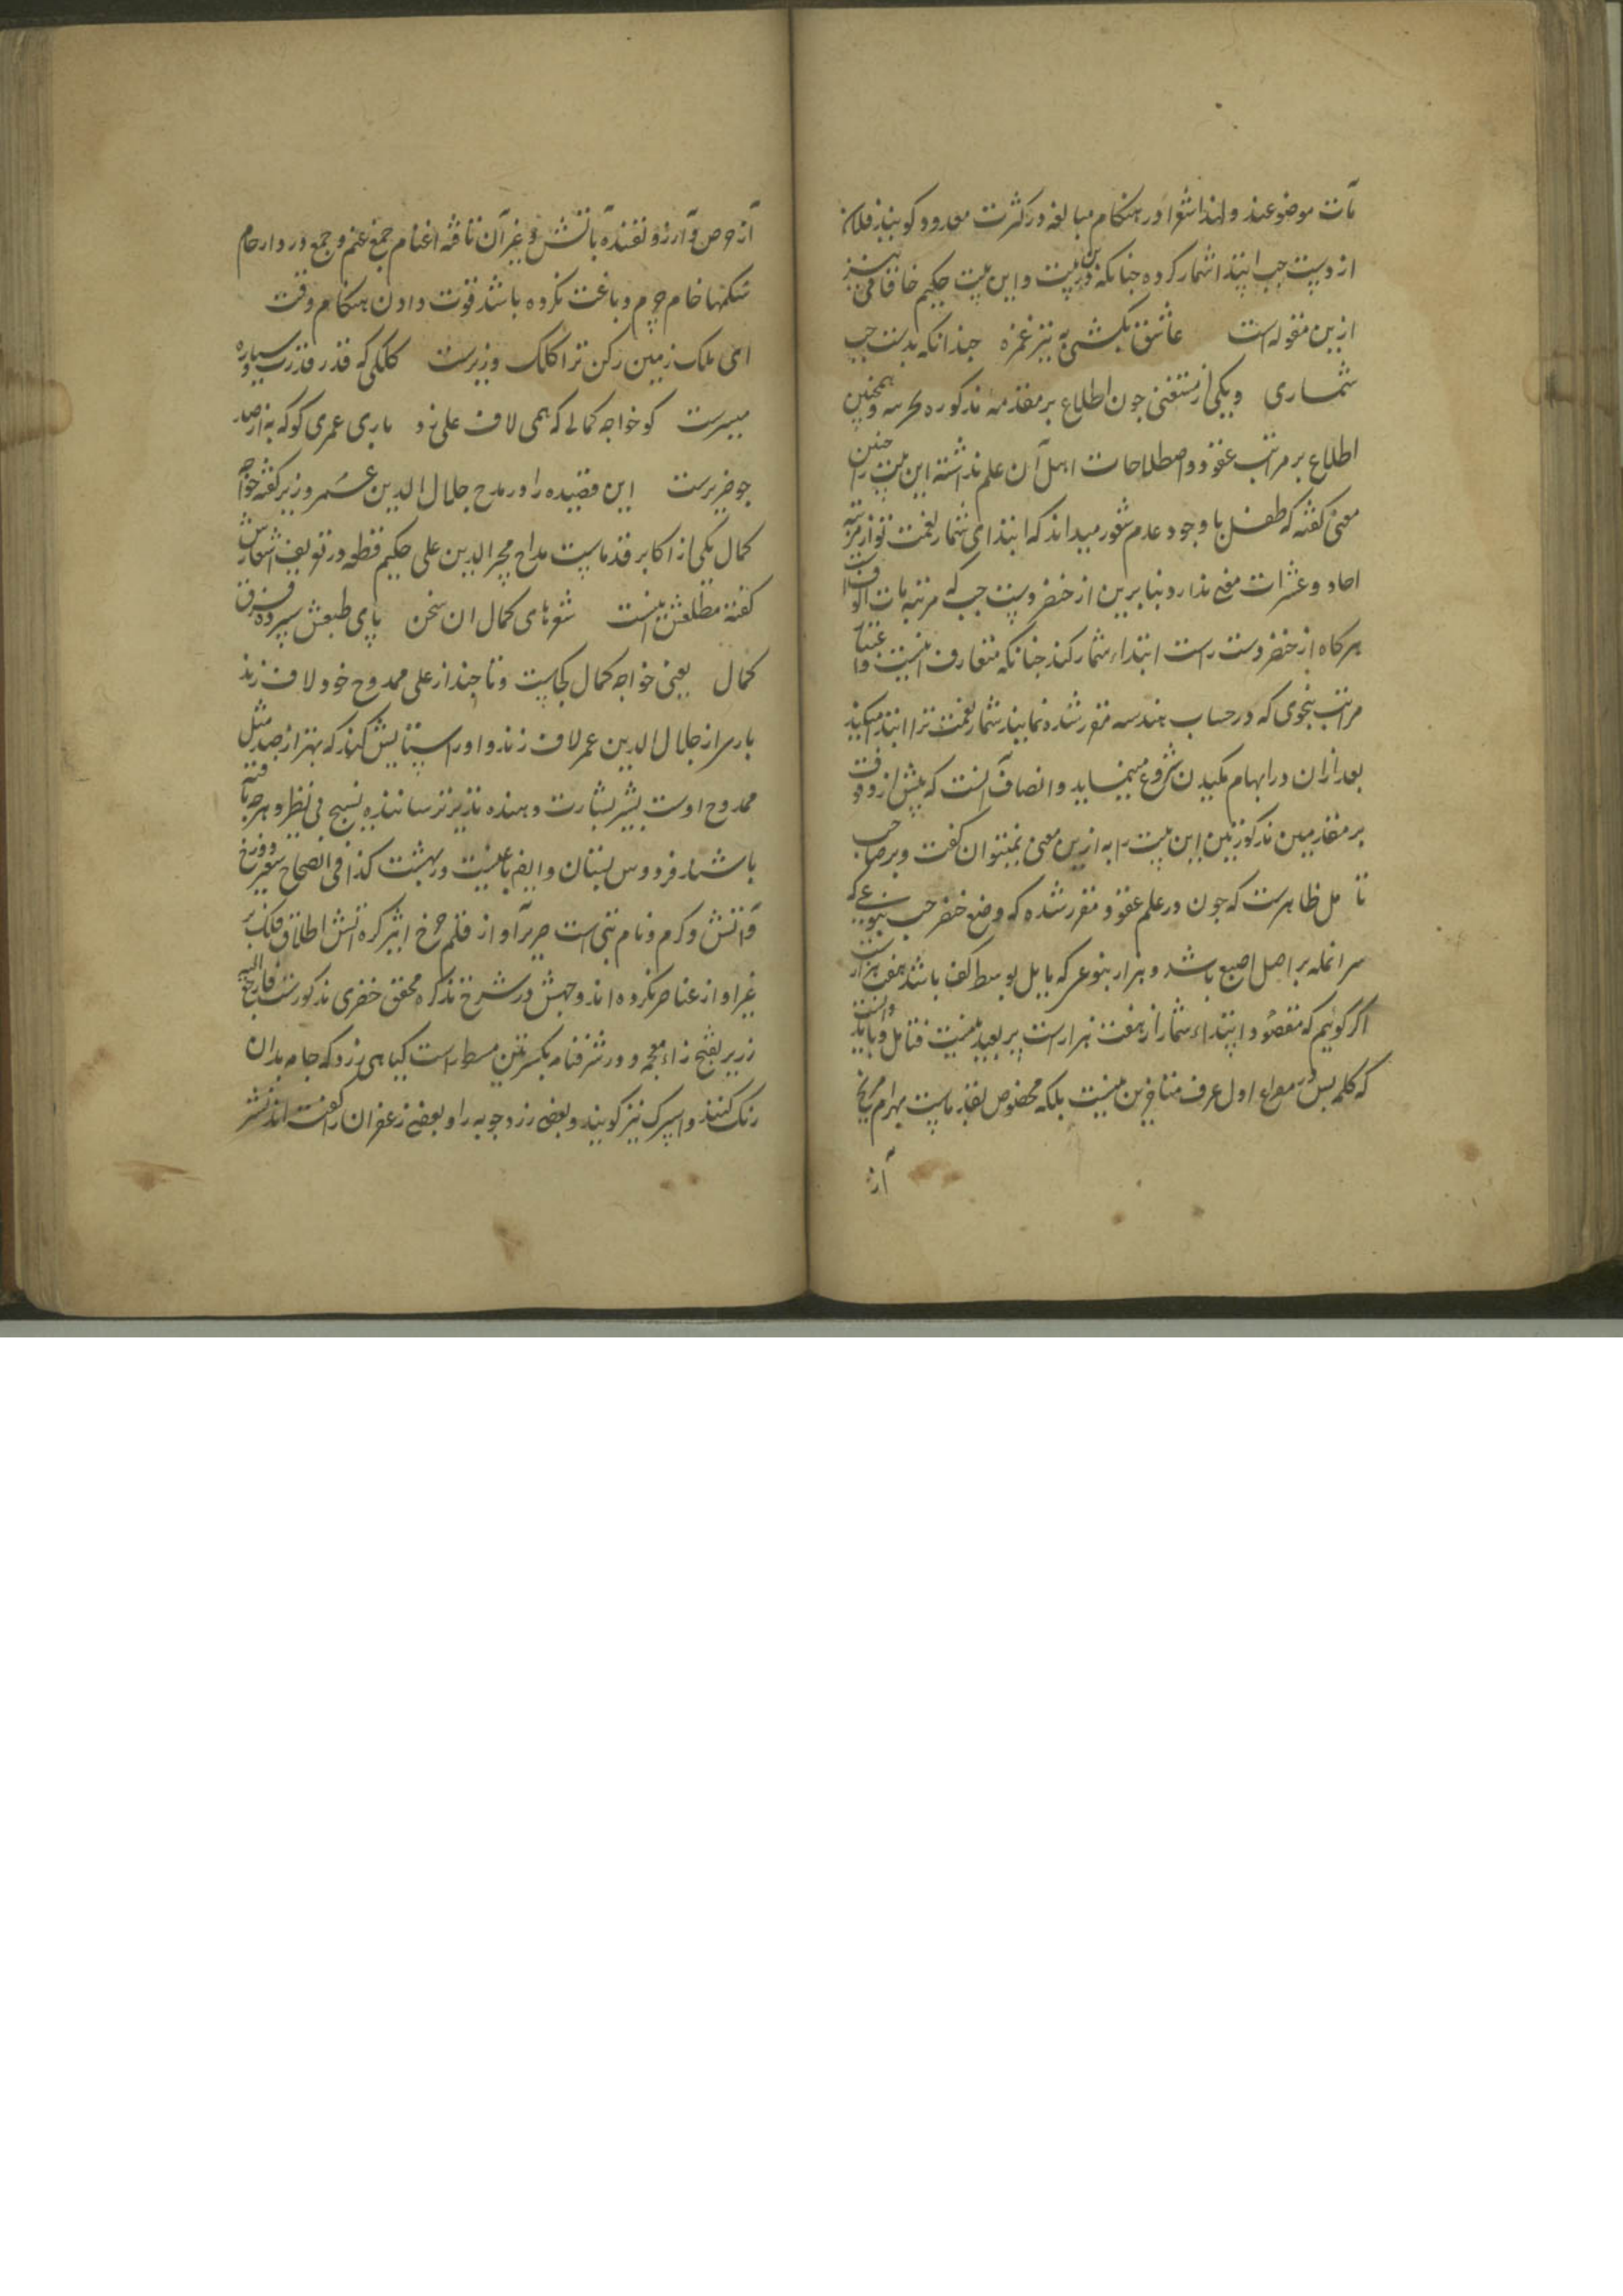 مآت موضوعند و لهذا شعرا در هنکام مبالغه در کثرت معدود کویند فلان
از دست چب ابتدا شمار کرده جنانکه درین بیت و این بیت حکیم خاقانی نیز
ازین مقوله است عاشق بکشی به تیر غمزه جندانکه بدست چب
شماری و یکی از متفنی جون اطلاع بر مقدمه مذکوره بحرسه و همچنین
اطلاع بر مراتب عقود و اصطلاحات اهل آن علم نداشته این بیت را جنین
معنی کفته که طفل با وجود عدم شعور میداند که ابتدای شمار نعمت تو از مرتبه
احاد و عشرات معنی ندارد بنابرین از خنصر دست چب که مرتبه مات الوفست
هرکاه از خنصر دست راست ابتداء شمار کند جنانکه متعارف اینست و
مراتب بنحوی که در حساب هندسه مقرر شده نمایند شمار نعمت ترا ابتدا میکند
بعد ازان در ابهام مکیدن شروع مینماید و انصاف آنست که پیش از وقوف
بر مقدمتین مذکورتین این بیت را به ازین معنی نمیتوان کفت و بر صاحب
تامل ظاهرست که جون در علم عقود مقرر شده که وضع خنصر چب بنوعی که
سر انمله بر اصل اصبع باشد و هزار بنوعی که مایل بوسط کف باشد هفت هزارست
اکر کوئیم که مقصود ابتداء شمار از هفت هزار است پر بعید نیست فتامل و باید دانست
که کلمه بس در مصراع اول عرف متاخرین نیست بلکه مخصوص بقدماست بهرام مریخ
آز
آز حرص و آرزو تفنده بآتش و غیر آن تافته اغنام جمع غنم و جمع در دار حام
شکمها خام چرم دباغت نکرده باشد قوت دادن هنکام وقت
ای ملک زمین رکن ترا کلک وزیرست کلکی که قدر قدرت و سیاره
مسیرست کو خواجه کمالی که همی لاف علی زد باری عمری کو که به از صد
جو ضریرست این قصیده را در مدح جلال الدین عمر وزیر کفته خواجه
کمال یکی از اکابر قدماست مداح مجیر الدین علی حکیم قطعه در تعریف اشعارش
کفته مطلعش اینست شعرهای کمال ان سخن پای طبعش سپرده فرق
کمال یعنی خواجه کمال کجاست و تا چند از علی ممدوح خود لاف زند
بار سر از جلال الدین عمر لاف زند و او را ستایش کند که بهتر از صد مثل
ممدوح اوست بشیر بشارت دهنده نذیر ترساننده نسیج بی نظیر و هر جه بافته
باشند فردوس بستان و ایض باغیست در بهشت کذا فی الصحاح سعیر دوزخ
و آتش و کرم و نام بتی است صریر آواز قلم چرخ اثیر کره آتش اطلاق فلک بر
غیر او از عناصر نکرده اند وجهش در شرح تذکره محقق خضری مذکورست فارجع الیه
زریر بفتح زاء معجمه و در شرفنامه بکسرتین مسطور است کیاهی زرد که جامه بدان
رنک کنند و اسپرک نیز کویند و بعضی زرد جوبه را و بعضی زعفران را کفته اند نشر